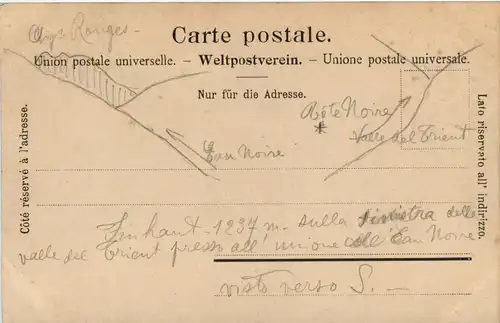 Aigs Rouges -
Carte postale.
Union postale universelle. – Weltpostverein. – Unione postale universale.
Nur für die Adresse.
Côté réservé à l'adresse.
Lato riservato all' indirizzo.
Tête Noire
*
Valle del Trient
Eau Noire
Finhaut - 1237 m - sulla sinistra della
valle del Trient presso all' unione dell' Eau Noire
visto verso S. -